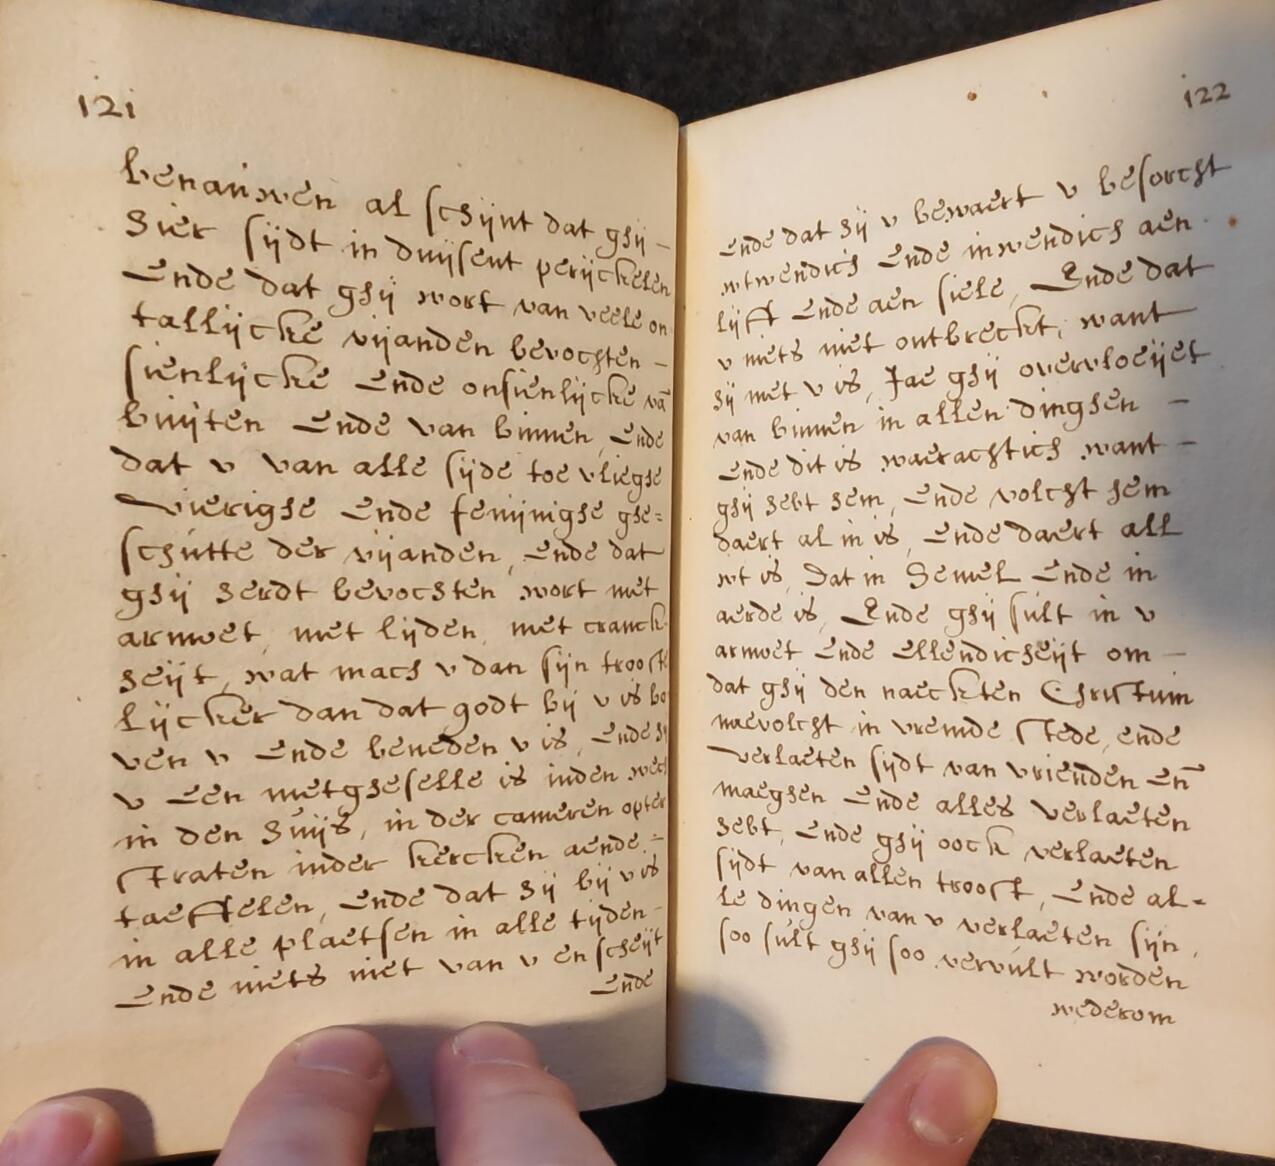 121
benauwen al schijnt dat ghij –
hier sijdt in duijsent perijckelen
ende dat ghij wort van veele on
tallijcke vijanden bevochten –
sienlijcke ende onsienlijcke vā
buijten ende van binnen, ende
dat v van alle sijde toe vlieghe
vierighe ende fenijnighe ghe=
schutte der vijanden, ende dat
ghij herdt bevochten wort met
armoet, met lijden, met cranck
heijt, wat mach v dan sijn troost
lijcker dan dat godt bij v is bo
ven v ende beneden v is, ende hij
v een metgheselle is inden wech
in den huijs, in der cameren opter
straten inder kercken aende –
taeffelen, ende dat hij bij v is
in alle plaetsen in alle tijden –
ende niets niet van v en scheijt
ende
122
ende dat hij v bewaert v besorcht
wtwendich ende inwendich aen
lijff ende aen siele, Ende dat
v niets niet ontbreckt, want
hij met v is, Jae ghij overvloeijet
van binnen in allen dinghen –
ende dit is waerachtich want –
ghij hebt hem, ende volcht hem
daert al in is, ende daert all
wt is, dat in hemel ende in
aerde is, Ende ghij sult in v
armoet ende ellendicheijt om –
dat ghij den naeckten Christum
naevolcht in vremde stede, ende
verlaeten sijdt van vrienden en̄
maeghen ende alles verlaeten
hebt, ende ghij oock verlaeten
sijdt van allen troost, ende al=
le dingen van v verlaeten sijn,
soo sult ghij soo vervult worden
wederom